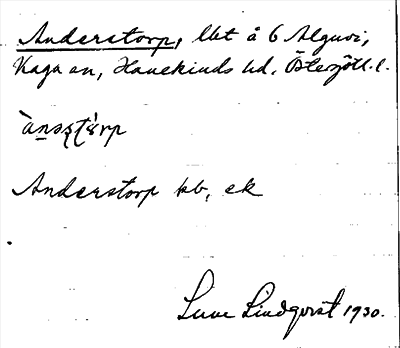 Anderstorp, lht å 6 Algusi,
Kaga sn, Hanekinds hd. Östergötl. l.
Anderstorp kb, ek
Sune Lindqvist 1930.